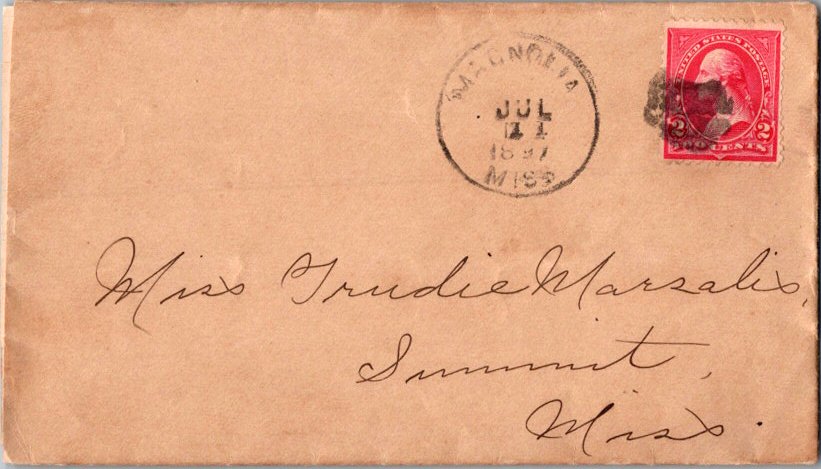 MAGNOLIA
JUL
11
1897
MISS
UNITED STATES POSTAGE
2 2
CENTS
Miss Trudie Marsalis,
Summit,
Miss.